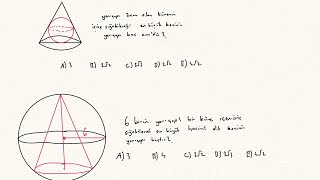 yarıçapı 3cm olan kürenin
içine sığabileceği en büyük koninin
yarıçapı kaç cm'dir?
A) 3 B) 2√2 C) 2√3 D) 3√2 E) 4√2
6
6 birim yarıçaplı bir küre içerisine
sığabilecek en büyük hacimli dik koninin
yarıçapı kaçtır?
A) 3 B) 4 C) 3√2 D) 2√3 E) 4√2